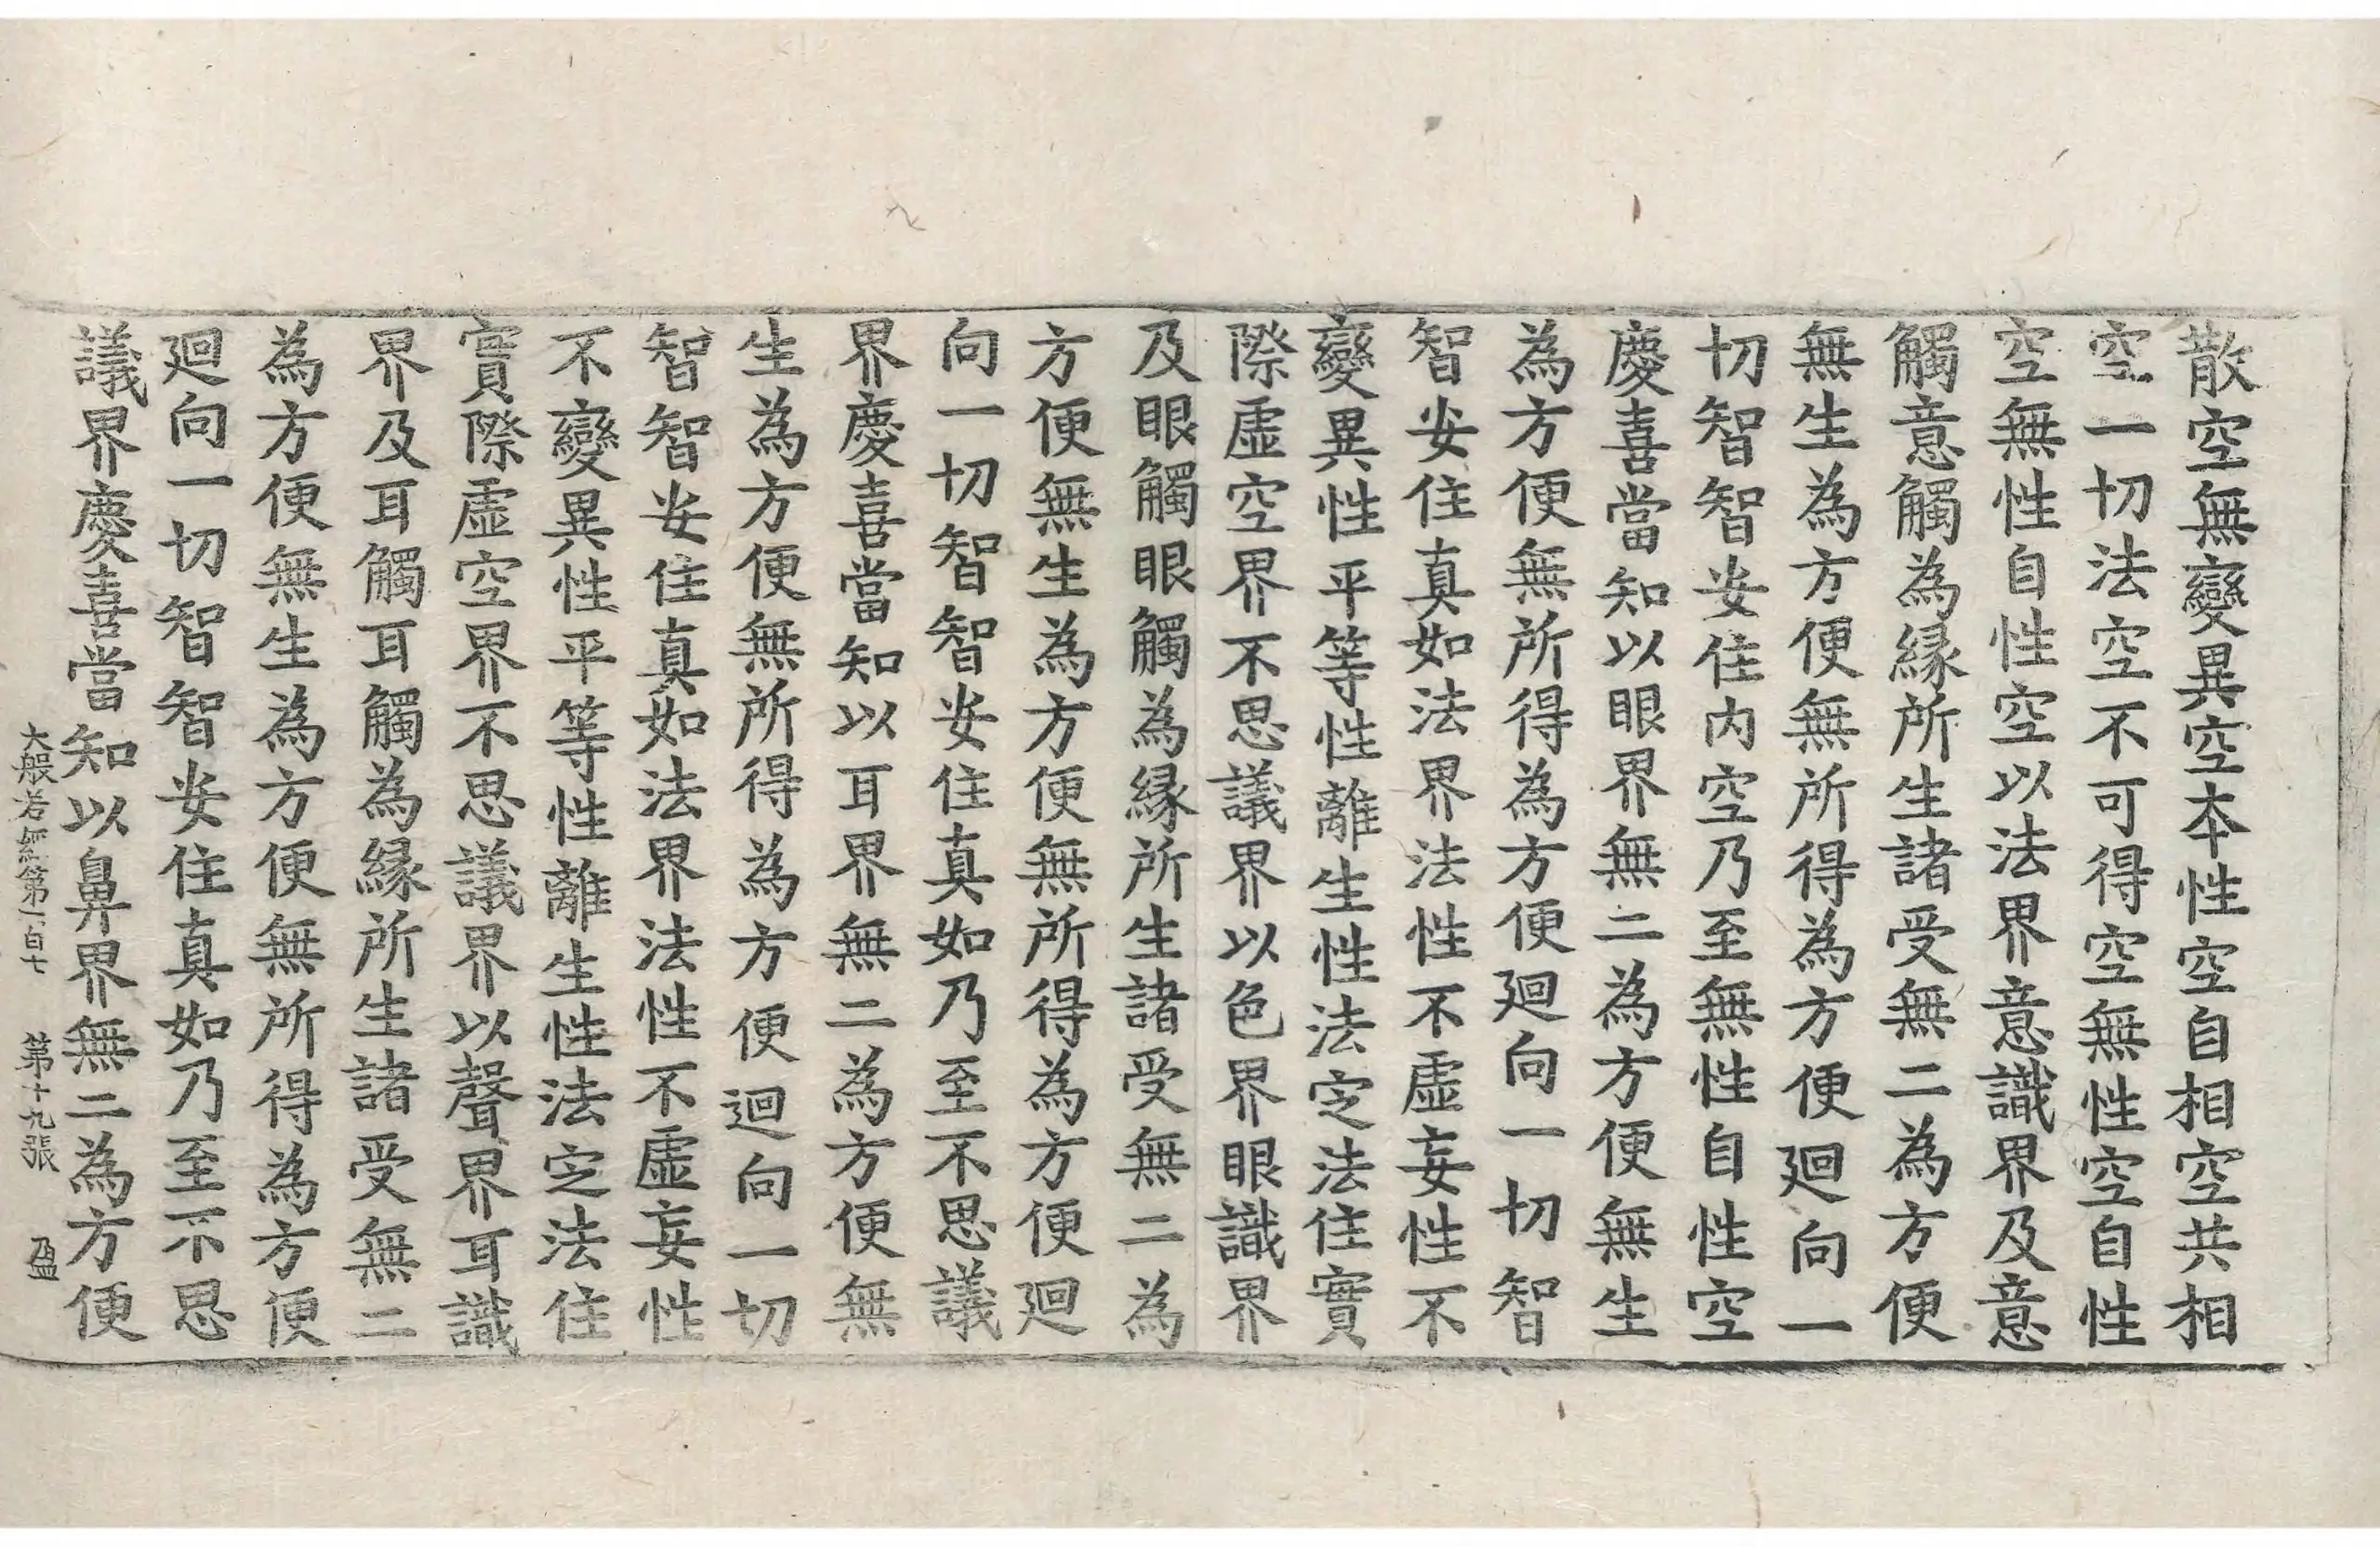 散空無變異空本性空自相空共相
空一切法空不可得空無性空自性
空無性自性空以法界意識界及意
觸意觸為縁所生諸受無二為方便
無生為方便無所得為方便廻向一
切智智安住内空乃至無性自性空
慶喜當知以眼界無二為方便無生
為方便無所得為方便廻向一切智
智安住真如法界法性不虛妄性不
變異性平等性離生性法定法住實
際虛空界不思議界以色界眼識界
及眼觸眼觸為縁所生諸受無二為
方便無生為方便無所得為方便廻
向一切智智安住真如乃至不思議
界慶喜當知以耳界無二為方便無
生為方便無所得為方便迴向一切
智智安住真如法界法性不虛妄性
不變異性平等性離生性法定法住
實際虛空界不思議界以聲界耳識
界及耳觸耳觸為縁所生諸受無二
為方便無生為方便無所得為方便
廻向一切智智安住真如乃至不思
議界慶喜當知以鼻界無二為方便
大般若經第一百七　第十九張　盈